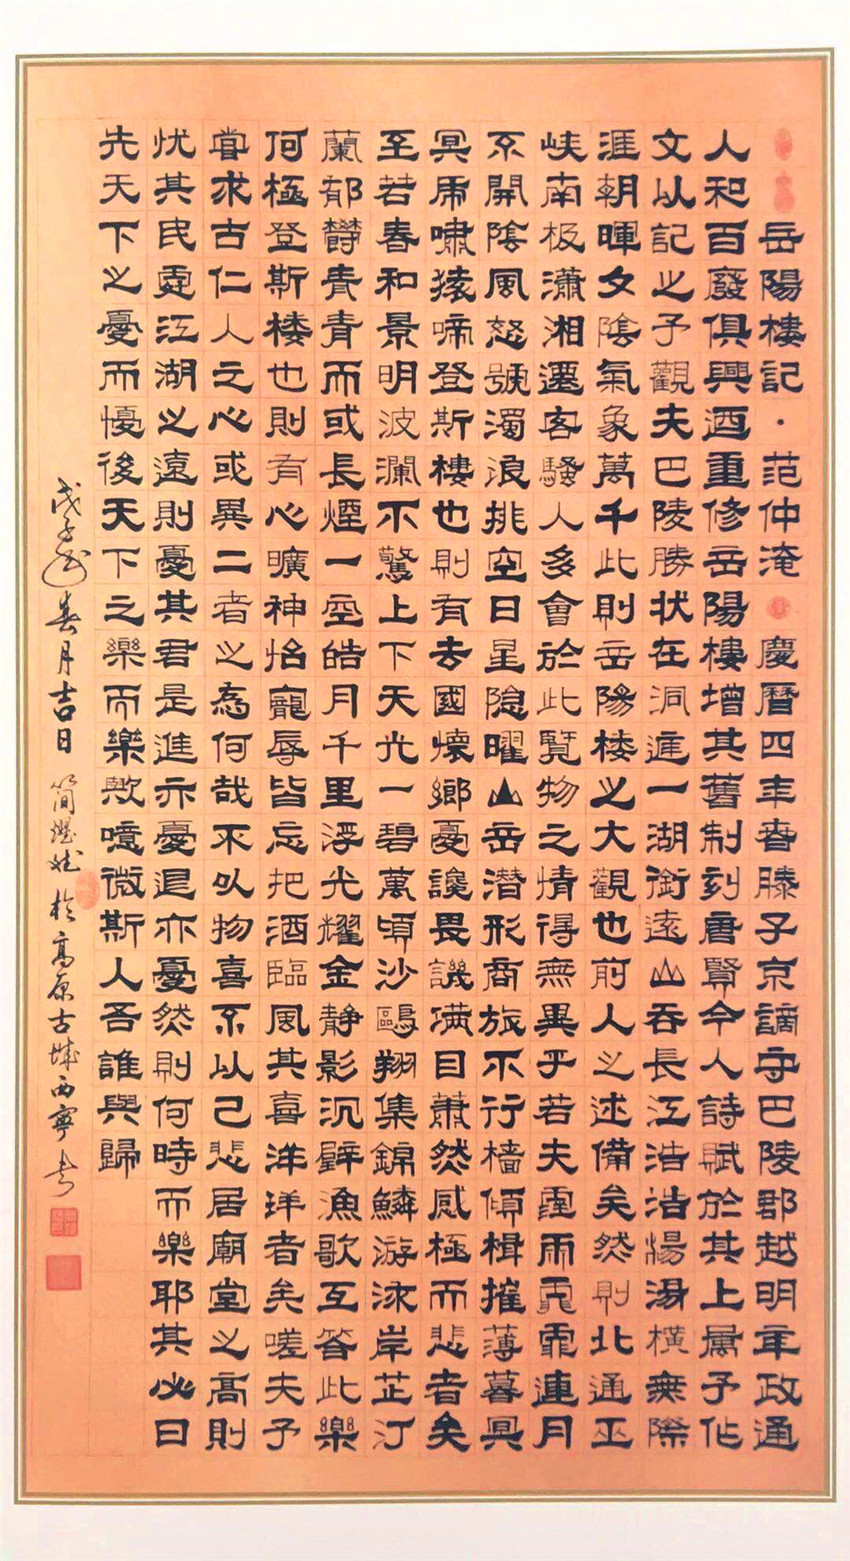 岳陽樓記·范仲淹 慶曆四年春滕子京謫守巴陵郡越明年政通
人和百廢俱興迺重修岳陽樓增其舊制刻唐賢今人詩賦於其上屬予作
文以記之予觀夫巴陵勝状在洞庭一湖銜遠山吞長江浩浩湯湯橫無際
涯朝暉夕陰氣象萬千此則岳陽楼之大觀也前人之述備矣然則北通巫
峽南极瀟湘遷客騷人多會於此覽物之情得無異乎若夫霪雨霏霏連月
不開陰風怒號濁浪排空日星隐曜山岳潜形商旅不行檣傾楫摧薄暮冥
冥虎嘯猿啼登斯樓也則有去國懷鄉憂讒畏譏满目蕭然感極而悲者矣
至若春和景明波瀾不驚上下天光一碧萬頃沙鷗翔集錦鱗游泳岸芷汀
蘭郁欝青青而或長煙一空皓月千里浮光耀金静影沉璧漁歌互答此樂
何極登斯楼也則有心曠神怡寵辱皆忘把酒臨風其喜洋洋者矣嗟夫予
嘗求古仁人之心或異二者之為何哉不以物喜不以己悲居廟堂之高則
忧其民處江湖之遠則憂其君是進亦憂退亦憂然則何時而樂耶其必曰
先天下之憂而懮後天下之樂而樂歟噫微斯人吾誰與歸
戊子年春月吉日 於高原古城西寧書